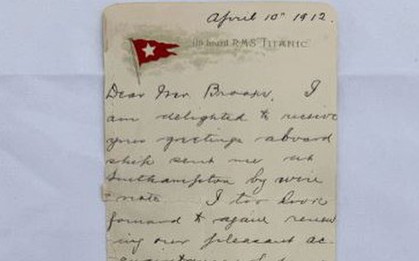 April 10th 1912.
On board R.M.S. TITANIC
Dear Mr
I
am delighted to receive
your greetings aboard
ship sent me at
Southampton by wire
note. I too look
forward to again renew
ing our pleasant ac